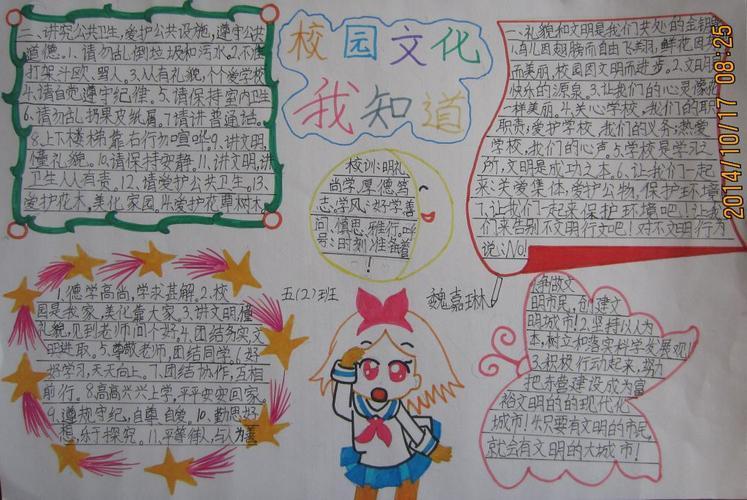 校园文化
我知道
二、讲究公共卫生,爱护公共设施,遵守公共
道德。1、请勿乱倒垃圾和污水。2.不准
打架斗殴、骂人。3.人人有礼貌,个个爱学校
4.请自觉遵守纪律。5.请保持室内卫生
6.请勿乱扔果皮纸屑。7.请讲普通话。
8.上下楼梯靠右行勿喧哗。9.讲文明,
懂礼貌。10.请保持安静。11.讲文明,讲
卫生人人有责。12.请爱护公共卫生。13.
爱护花木,美化家园。14.爱护花草树木。
校训:明礼
尚学,厚德笃
志,学风:好学善
问,慎思,雅行。口
号:时刻准备着
!
一、礼貌和文明是我们共处的金钥匙
1.鸟儿因翅膀而自由飞翔,鲜花因
而美丽,校园因文明而进步。2.文明是
快乐的源泉。3.让我们的心灵像花
一样美丽。4.关心学校,我们的职
职责;爱护学校,我们的义务;热爱
学校,我们的心声。5.学校是学习之
所,文明是成功之本。6.让我们一起
来:关爱集体,爱护公物,保护环境
7.让我们一起来保护环境吧!让我
们来告别不文明行为吧!对不文明行为
说:No!
五(2)班
魏嘉琳
1.德学高尚,学求甚解。2.校
园是我家,美化靠大家。3.讲文明懂
礼貌,见到老师问个好。4.团结务实,文
明进取。5.尊敬老师,团结同学。6.好
好学习,天天向上。7.团结协作,互相
前行。8.高高兴兴上学,平平安安回家。
9.遵规守纪,自尊自爱。10.勤思好
想,乐于探究。11.平等待人,与人为善
1.争做文
明市民,创建文
明城市!2.坚持以人为
本,树立和落实科学发展观!
3.积极行动起来,努力
把赤壁建设成为富
裕文明的的现代化
城市!4.只要有文明的市民,
就会有文明的大城市!
2014/10/17 08:25